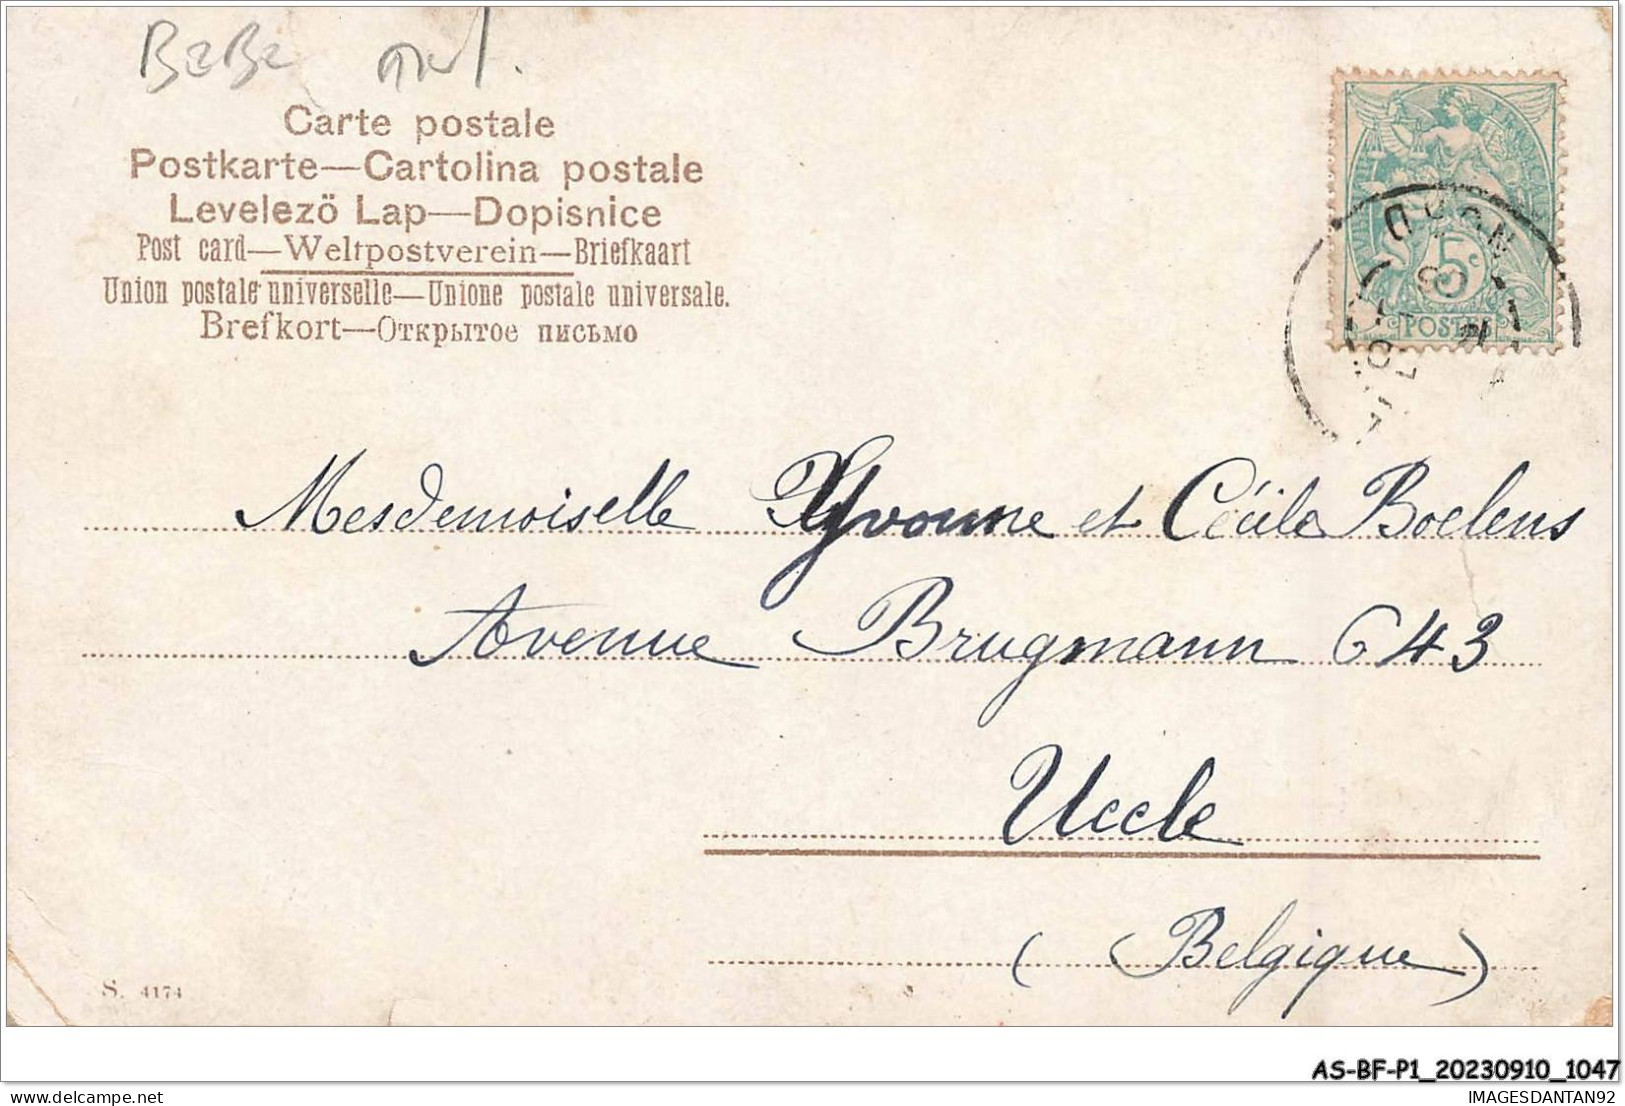 BeBe
Carte postale
Postkarte—Cartolina postale
Levelező Lap—Dopisnice
Post card—Weltpostverein—Briefkaart
Union postale universelle—Unione postale universale.
Brefkort—Открытое письмо
5c
POSTES
Mesdemoiselle Yvonne et Cécile Boelens
Avenue Brugmann 643
Uccle
(Belgique)
S. 4174
AS-BF-P1_20230910_1047
delcampe.net
IMAGESDANTAN92